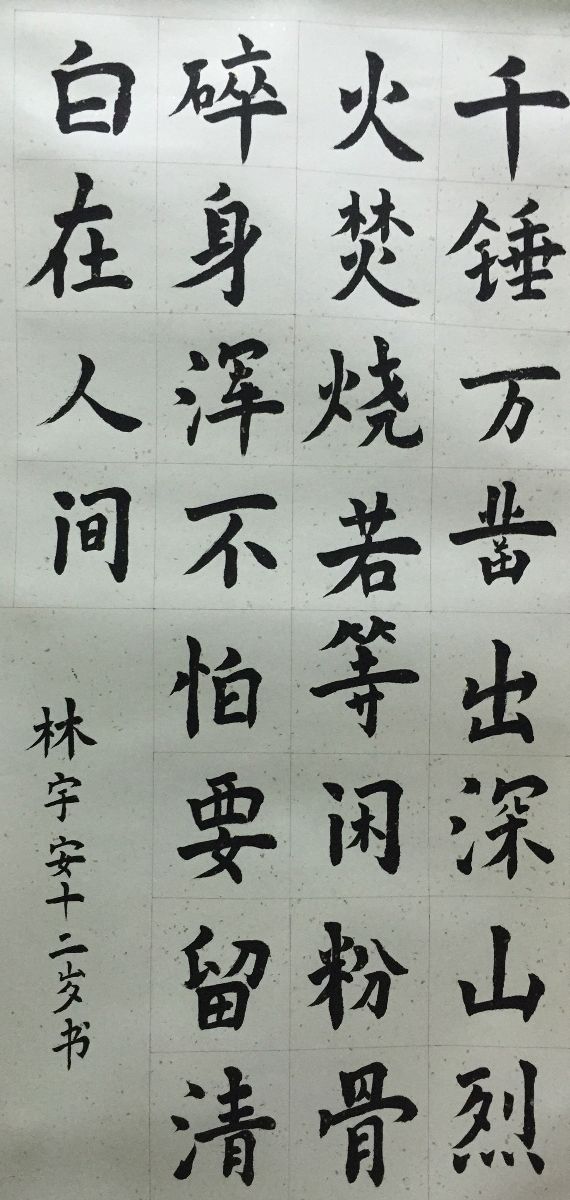 千锤万凿出深山烈
火焚烧若等闲粉骨
碎身浑不怕要留清
白在人间
林宇安十二岁书